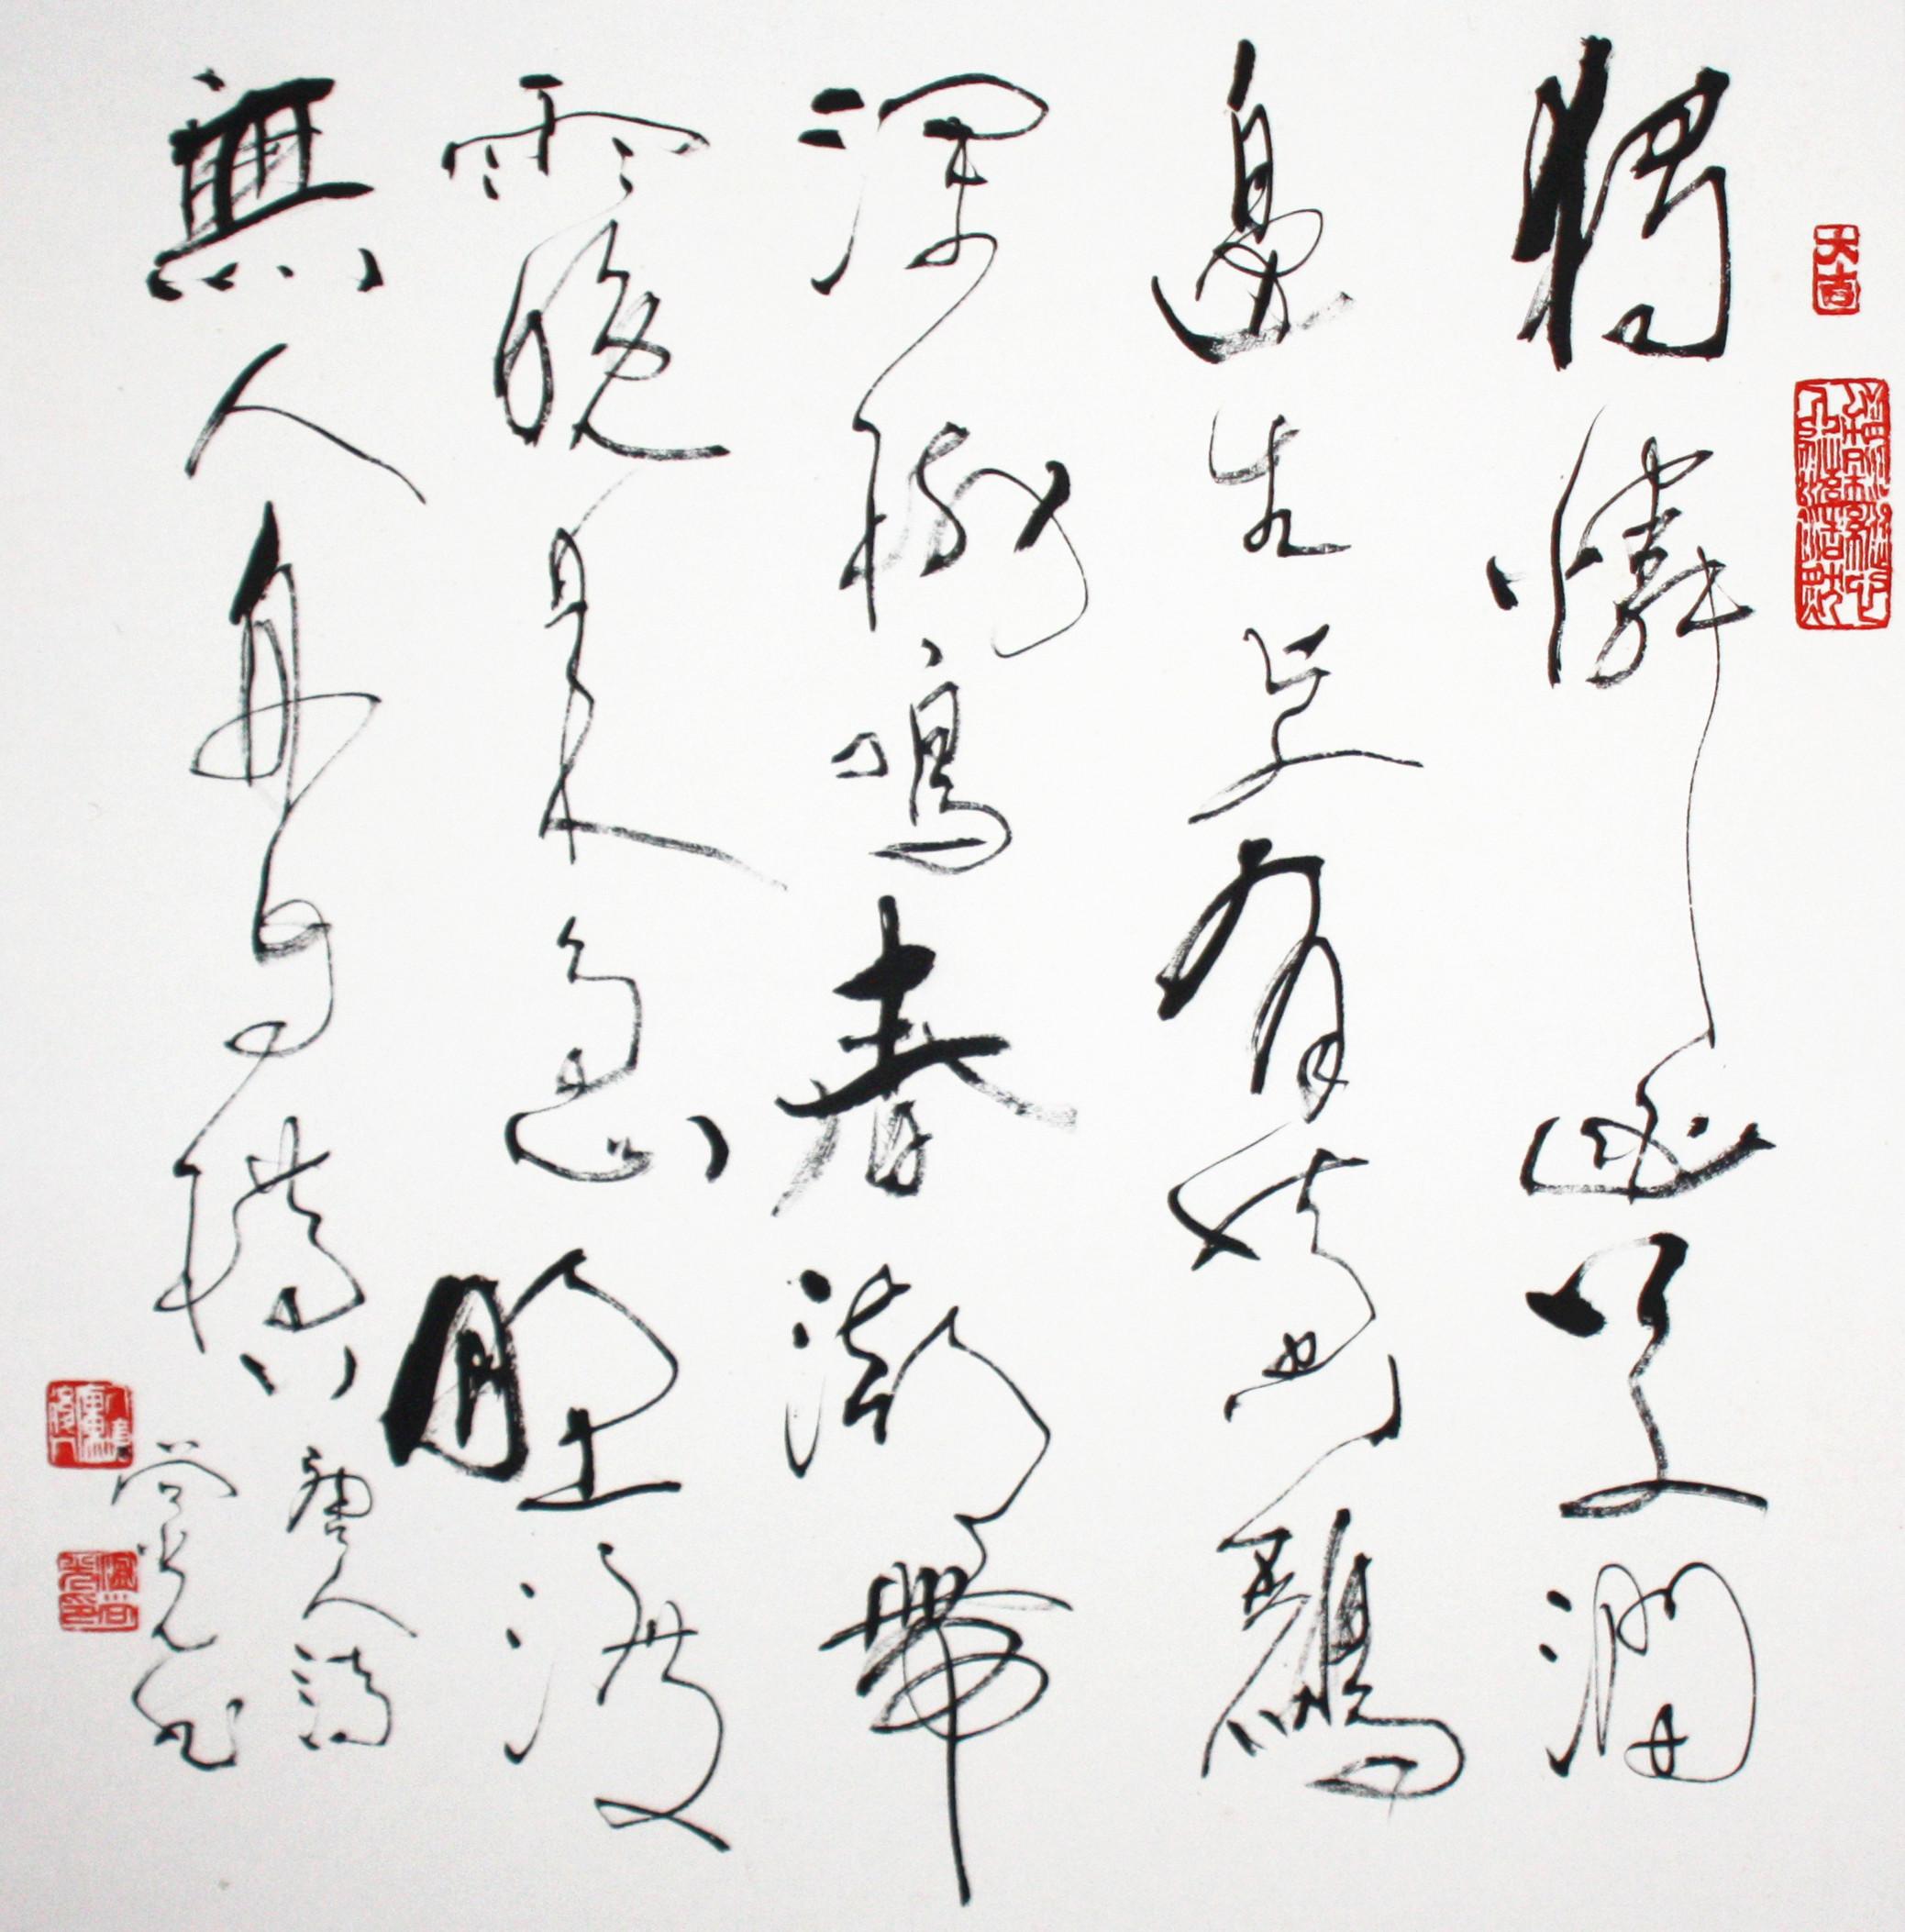 大吉
獨憐幽草澗
邊生上有黃鸝
深樹鳴春潮帶
雨晚來急野渡
無人舟自橫
唐人詩